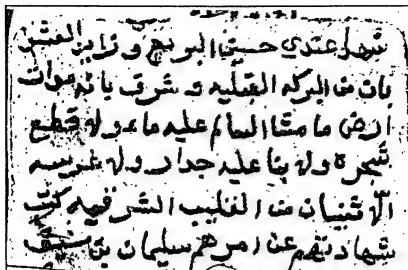 شهد عندي حسين البريج وزاير العتير
بان من البركه القبليه وشرق بانه موات
ارض ما مشا السالم عليه ماء وله قطع
شجرة وله بنا عليه جدار وله غرسه
الا ثنيان من القليب الشرقيه كتب
شهادتهم عن امرهم سليمان بن